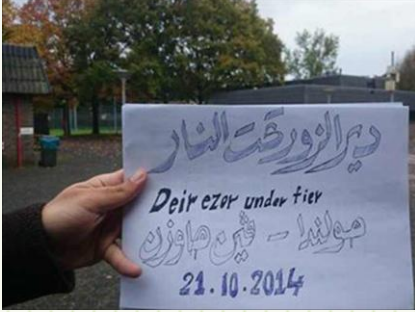 ديرالزور تحت النار
Deir ezor under fier
هولندا - ڤين هاوزن
21.10.2014